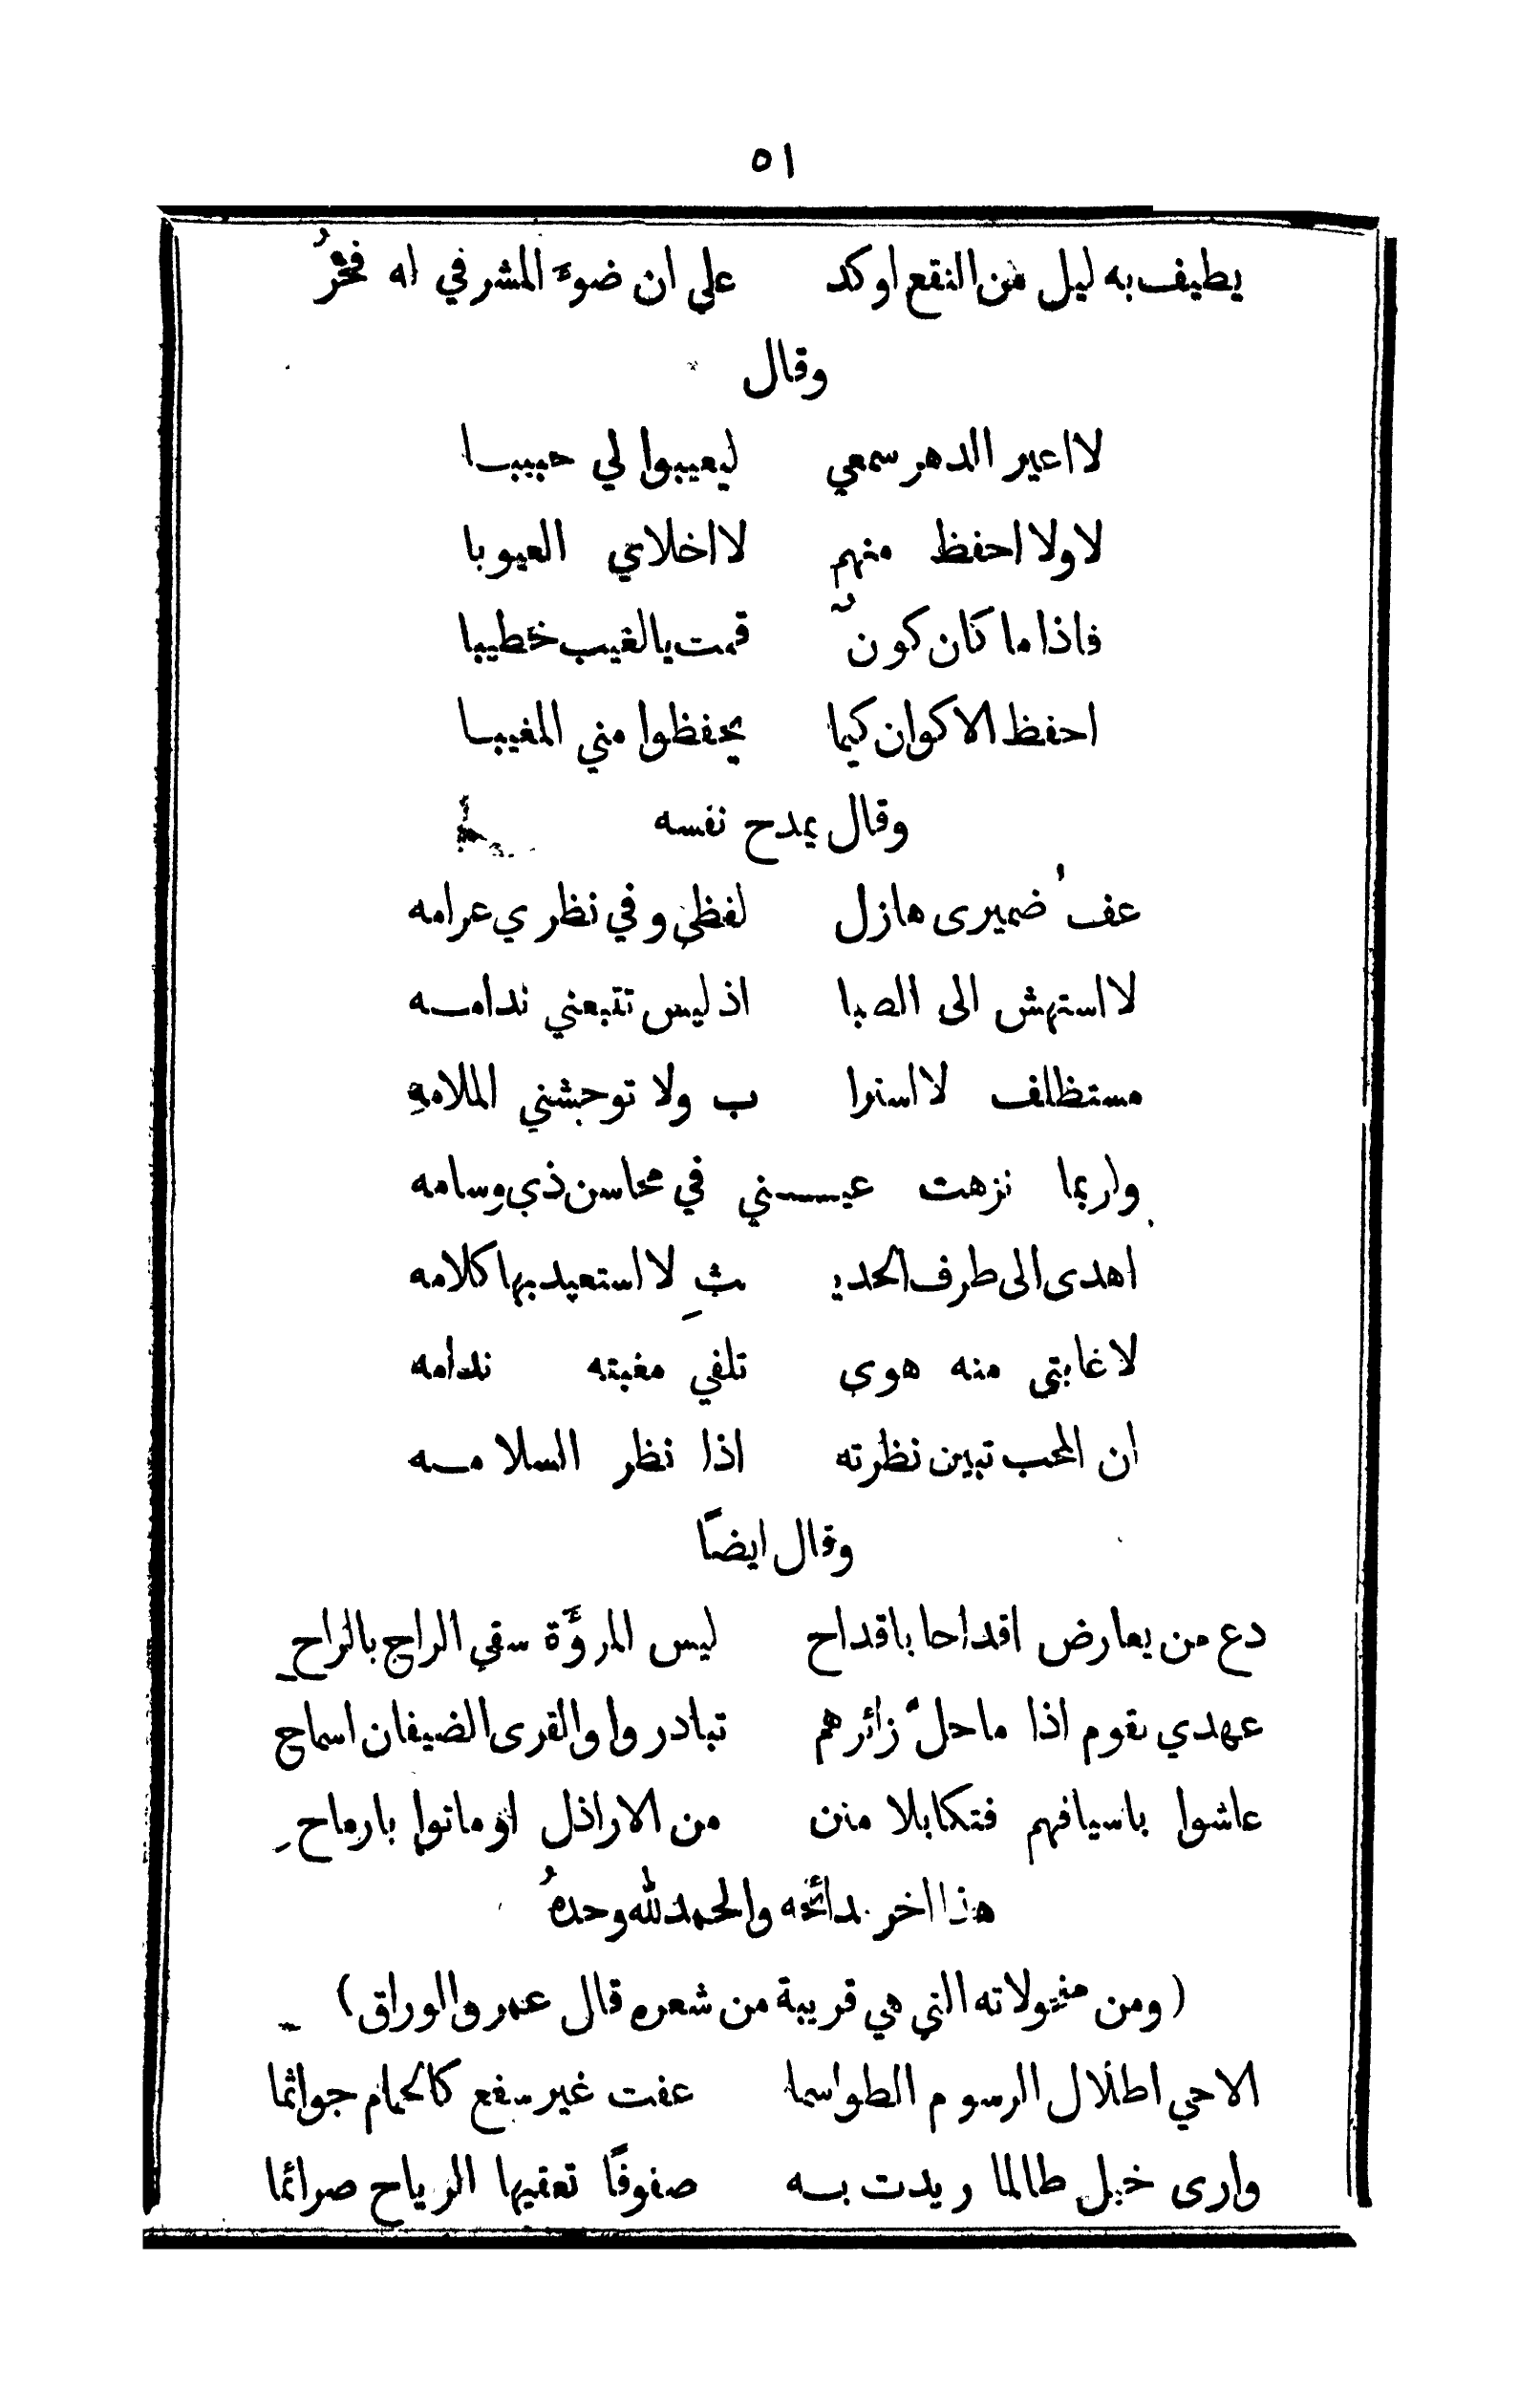 ٥١
يطيف به ليل من النقع اوكد على ان ضوء المشرفي له فجرُ
وقال
لا اعير الدهر سمعي ليعيبوا لي حبيبـا
لا ولا احفظ منهم لا اخلاي العيوبا
فاذا ما كان كونٌ قمت بالغيب خطيبا
احفظ الاكوان كيما يحفظوا مني المغيبـا
وقال يمدح نفسه
عفُ ضميرى هازل لفظي وفي نظري عرامه
لا استهش الى الصبا اذ ليس تتبعني ندامـه
مستظلف لا استرا ب ولا توحشني الملامه
ولربما نزهت عيـــني في محاسن ذي وسامه
اهدى الى طرف الحديـ ـثِ لا استعيد بها كلامه
لا غايتي منه هوى تلفي مغبته ندامه
ان المحب تبين نظرته اذا نظر السلامـه
وقال ايضاً
دع من يعارض اقداحا باقداح ليس المروَّة سقي الراح بالراحِ
عهدي بقوم اذا ما حلّ زائرهم تبادروا والقرى الضيفان اسماح
عاشوا باسيافهم فتكا بلا منن من الاراذل او ماتوا بارماحِ
هذا اخر بدائحه والحمد لله وحدهُ
(ومن منحولاته التي هي قريبة من شعره قال عمرو الوراق)
الا حي اطلال الرسوم الطواسما عفت غير سفع كالحمام جواثما
وارى خيل طالما ريدت بـه صفوفاً تعفيها الرياح صرائما